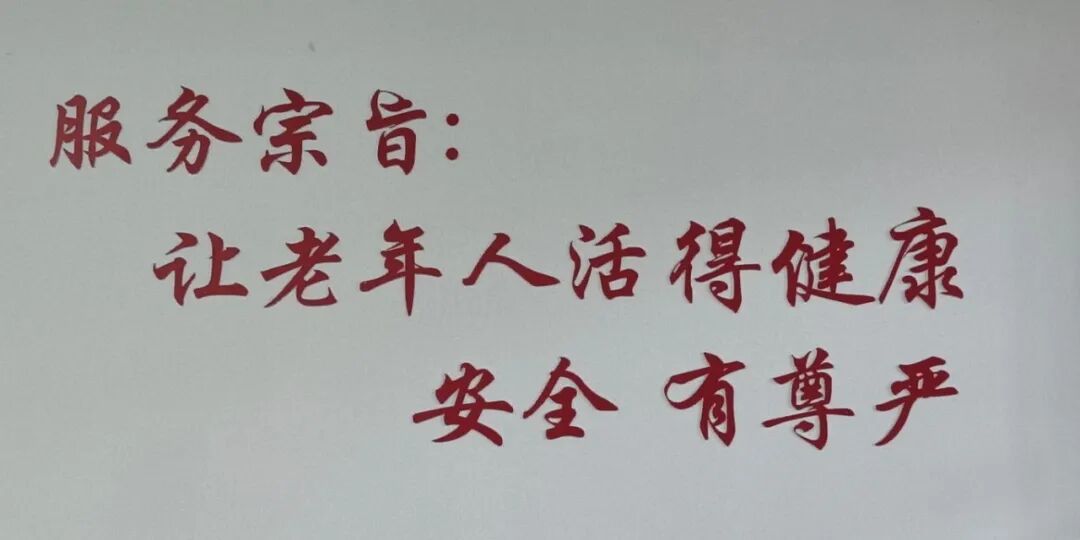 服务宗旨:
让老年人活得健康
安全 有尊严